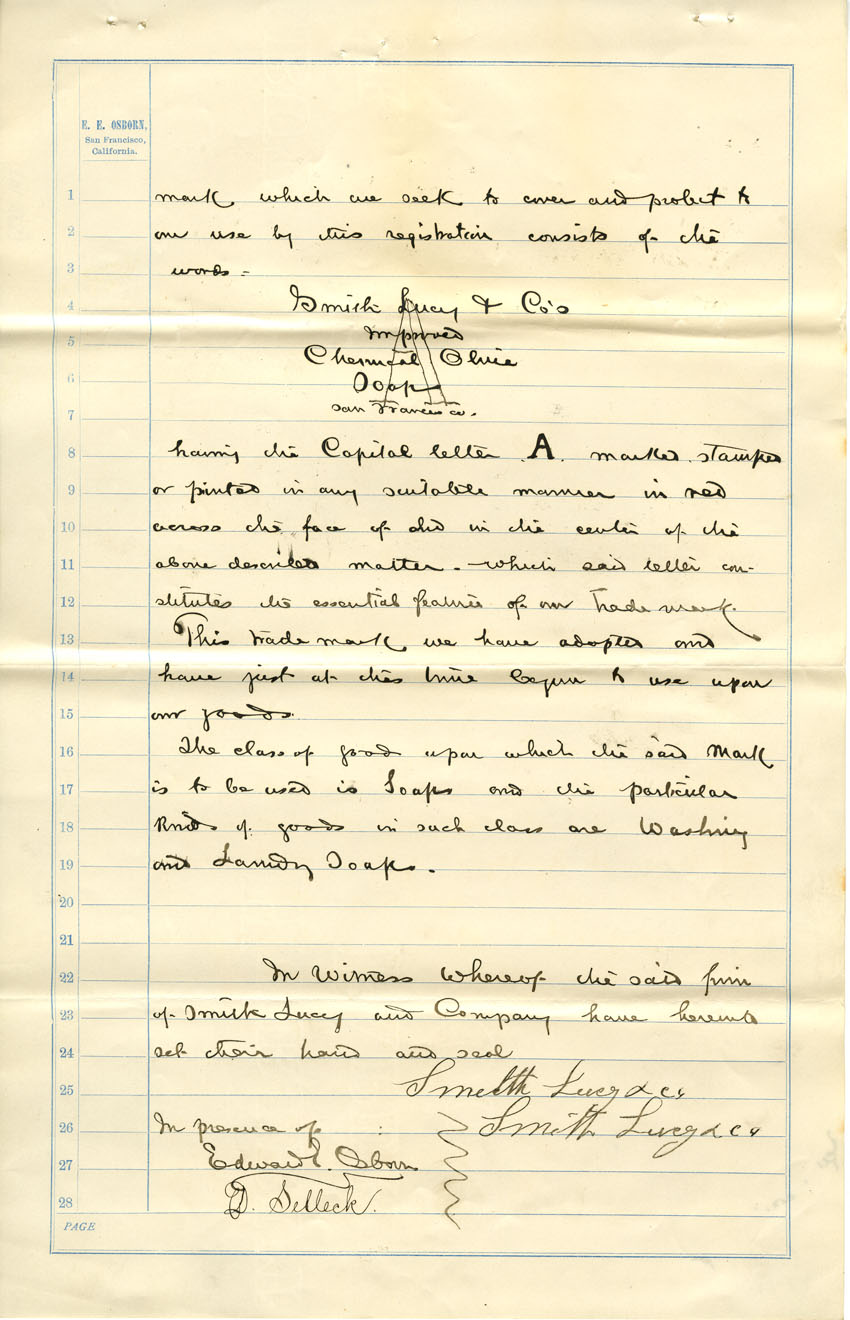 E. E. OSBORN,
San Francisco,
California.
1 mark which we seek to cover and protect to
2 our use by this registration consists of the
3 words -
4 Smith Lucy & Co's
Improved
5 Chemical Olive
6 Soap
San Francisco.
7
A
8 having the Capital letter A. marked, stamped
9 or printed in any suitable manner in red
10 across the face of and in the center of the
11 above described matter - which said letter con-
12 stitutes the essential feature of our trade mark.
13 This trade mark we have adopted and
14 have just at this time begun to use upon
15 our goods.
16 The class of goods upon which the said Mark
17 is to be used is Soaps and the particular
18 kinds of goods in such class are Washing
19 and Laundry Soaps.
20
21
22 In Witness Whereof the said firm
23 of Smith Lucy and Company have hereunto
24 set their hand and seal
25 Smith Lucy & Co
26 In presence of : Smith Lucy & Co
27 Edward E. Osborn
28 D. Selleck.
PAGE